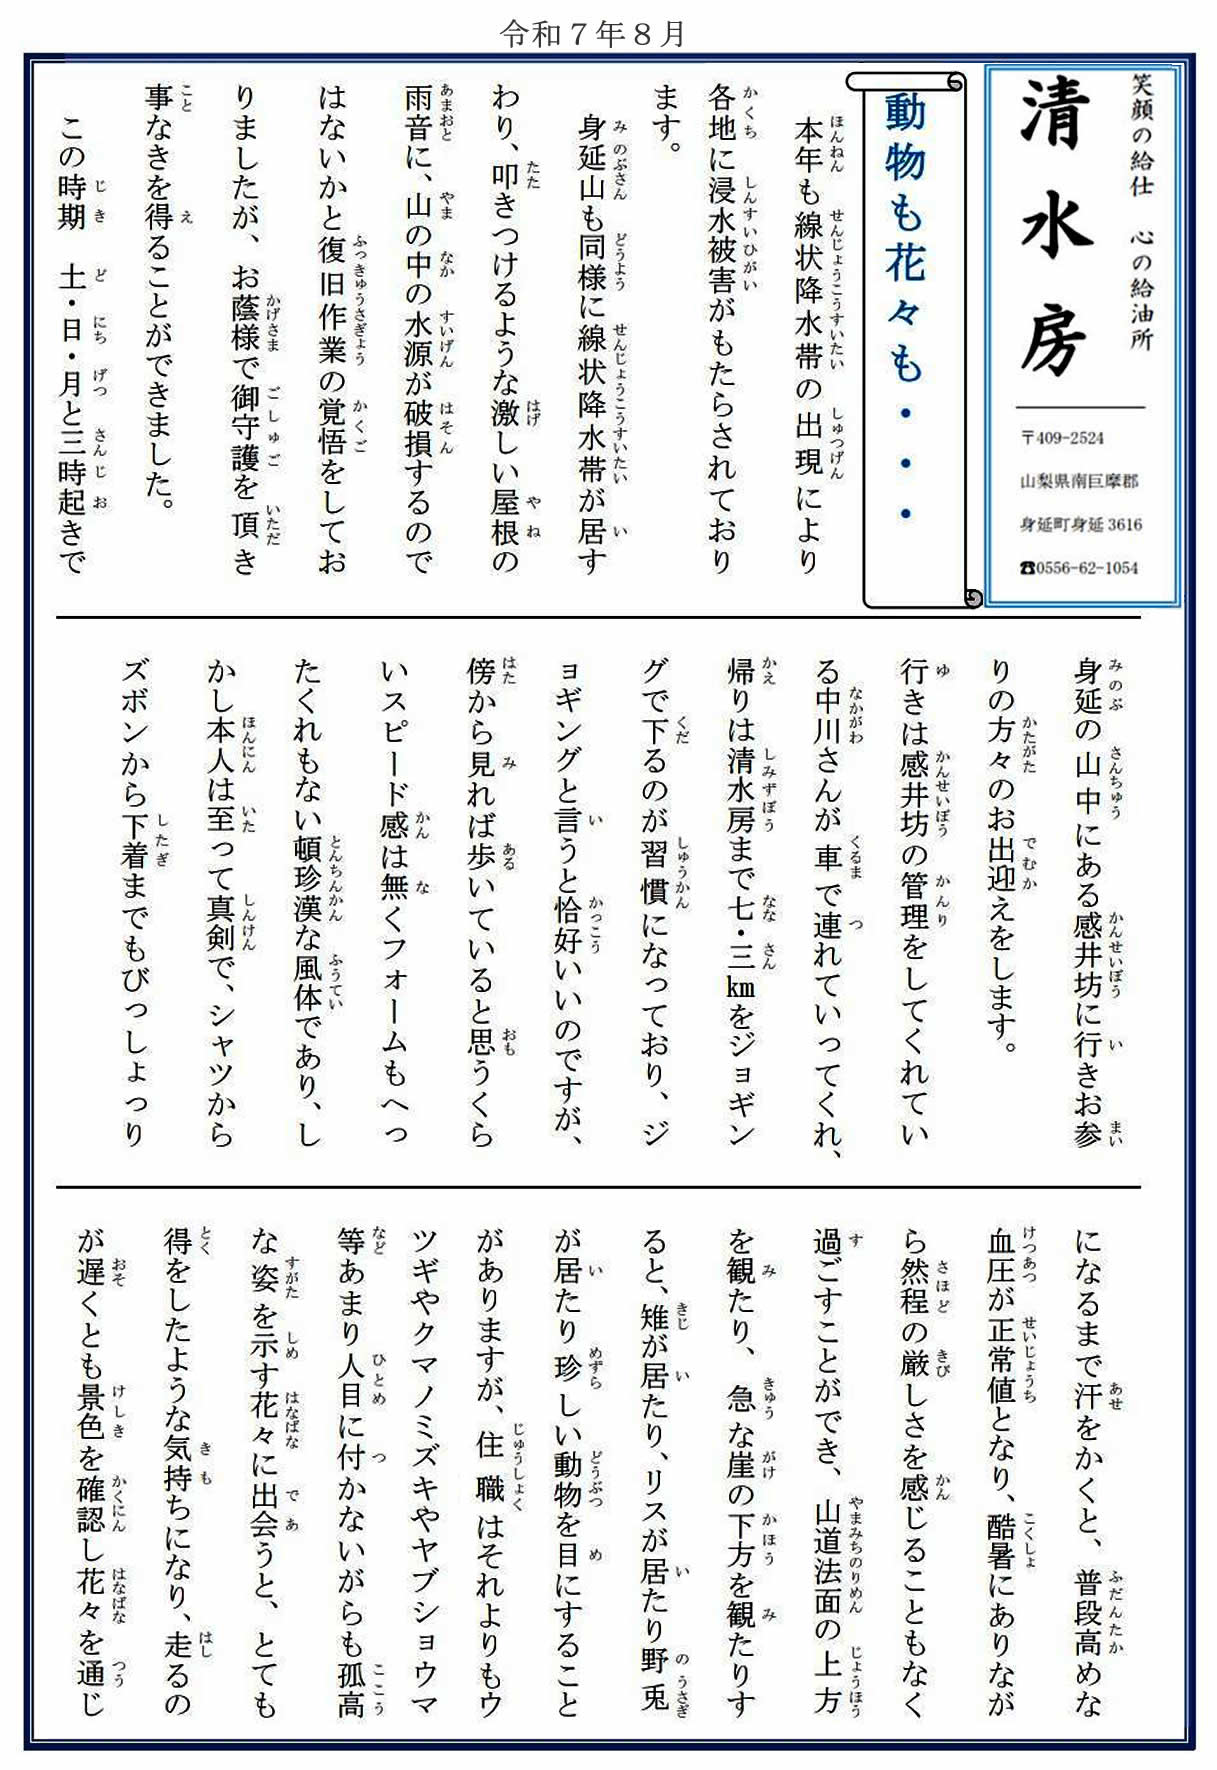 令和７年８月
笑顔の給仕　心の給油所
清水房
〒409-2524
山梨県南巨摩郡
身延町身延 3616
☎0556-62-1054
動物も花々も・・・
本年も線状降水帯の出現により
各地に浸水被害がもたらされており
ます。
身延山も同様に線状降水帯が居す
わり、叩きつけるような激しい屋根の
雨音に、山の中の水源が破損するので
はないかと復旧作業の覚悟をしてお
りましたが、お蔭様で御守護を頂き
事なきを得ることができました。
この時期　土・日・月と三時起きで
身延の山中にある感井坊に行きお参
りの方々のお出迎えをします。
行きは感井坊の管理をしてくれてい
る中川さんが車で連れていってくれ、
帰りは清水房まで七・三㎞をジョギン
グで下るのが習慣になっており、ジ
ョギングと言うと恰好いいのですが、
傍から見れば歩いていると思うくら
いスピード感は無くフォームもへっ
たくれもない頓珍漢な風体であり、し
かし本人は至って真剣で、シャツから
ズボンから下着までもびっしょっり
になるまで汗をかくと、普段高めな
血圧が正常値となり、酷暑にありなが
ら然程の厳しさを感じることもなく
過ごすことができ、山道法面の上方
を観たり、急な崖の下方を観たりす
ると、雉が居たり、リスが居たり野兎
が居たり珍しい動物を目にすること
がありますが、住職はそれよりもウ
ツギやクマノミズキやヤブショウマ
等あまり人目に付かないがらも孤高
な姿を示す花々に出会うと、とても
得をしたような気持ちになり、走るの
が遅くとも景色を確認し花々を通じ